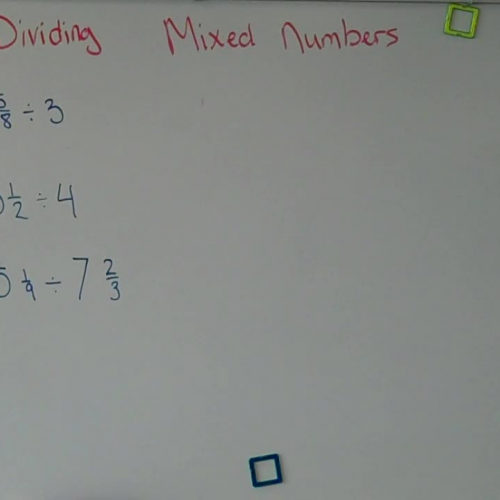 Dividing Mixed Numbers
5/8 ÷ 3
1/2 ÷ 4
5 1/9 ÷ 7 2/3